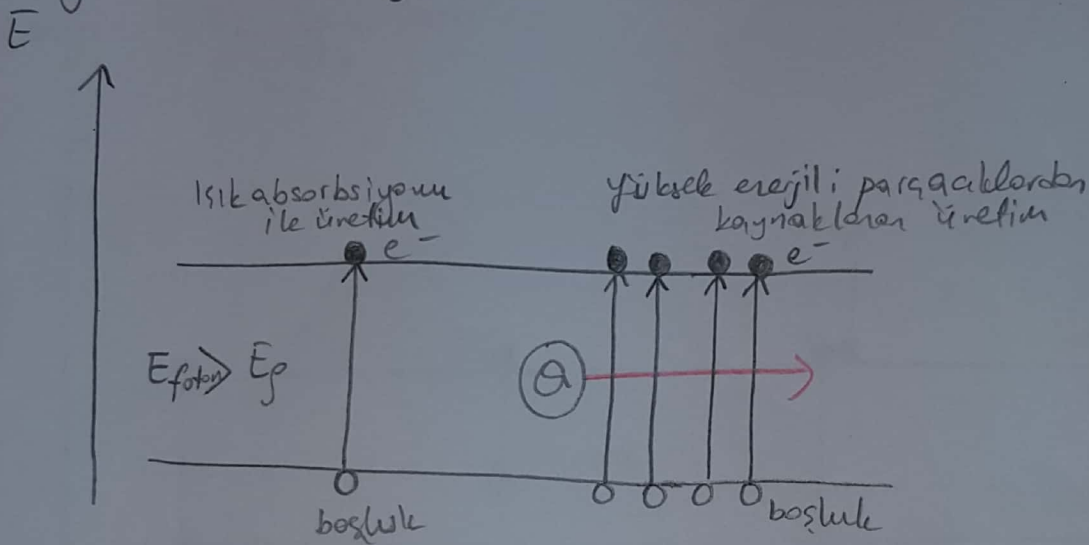 E
Işık absorbsiyonu
ile üretim
yüksek enerjili parçacıklardan
kaynaklanan üretim
e⁻
e⁻
E foton > Eg
Q
boşluk
boşluk